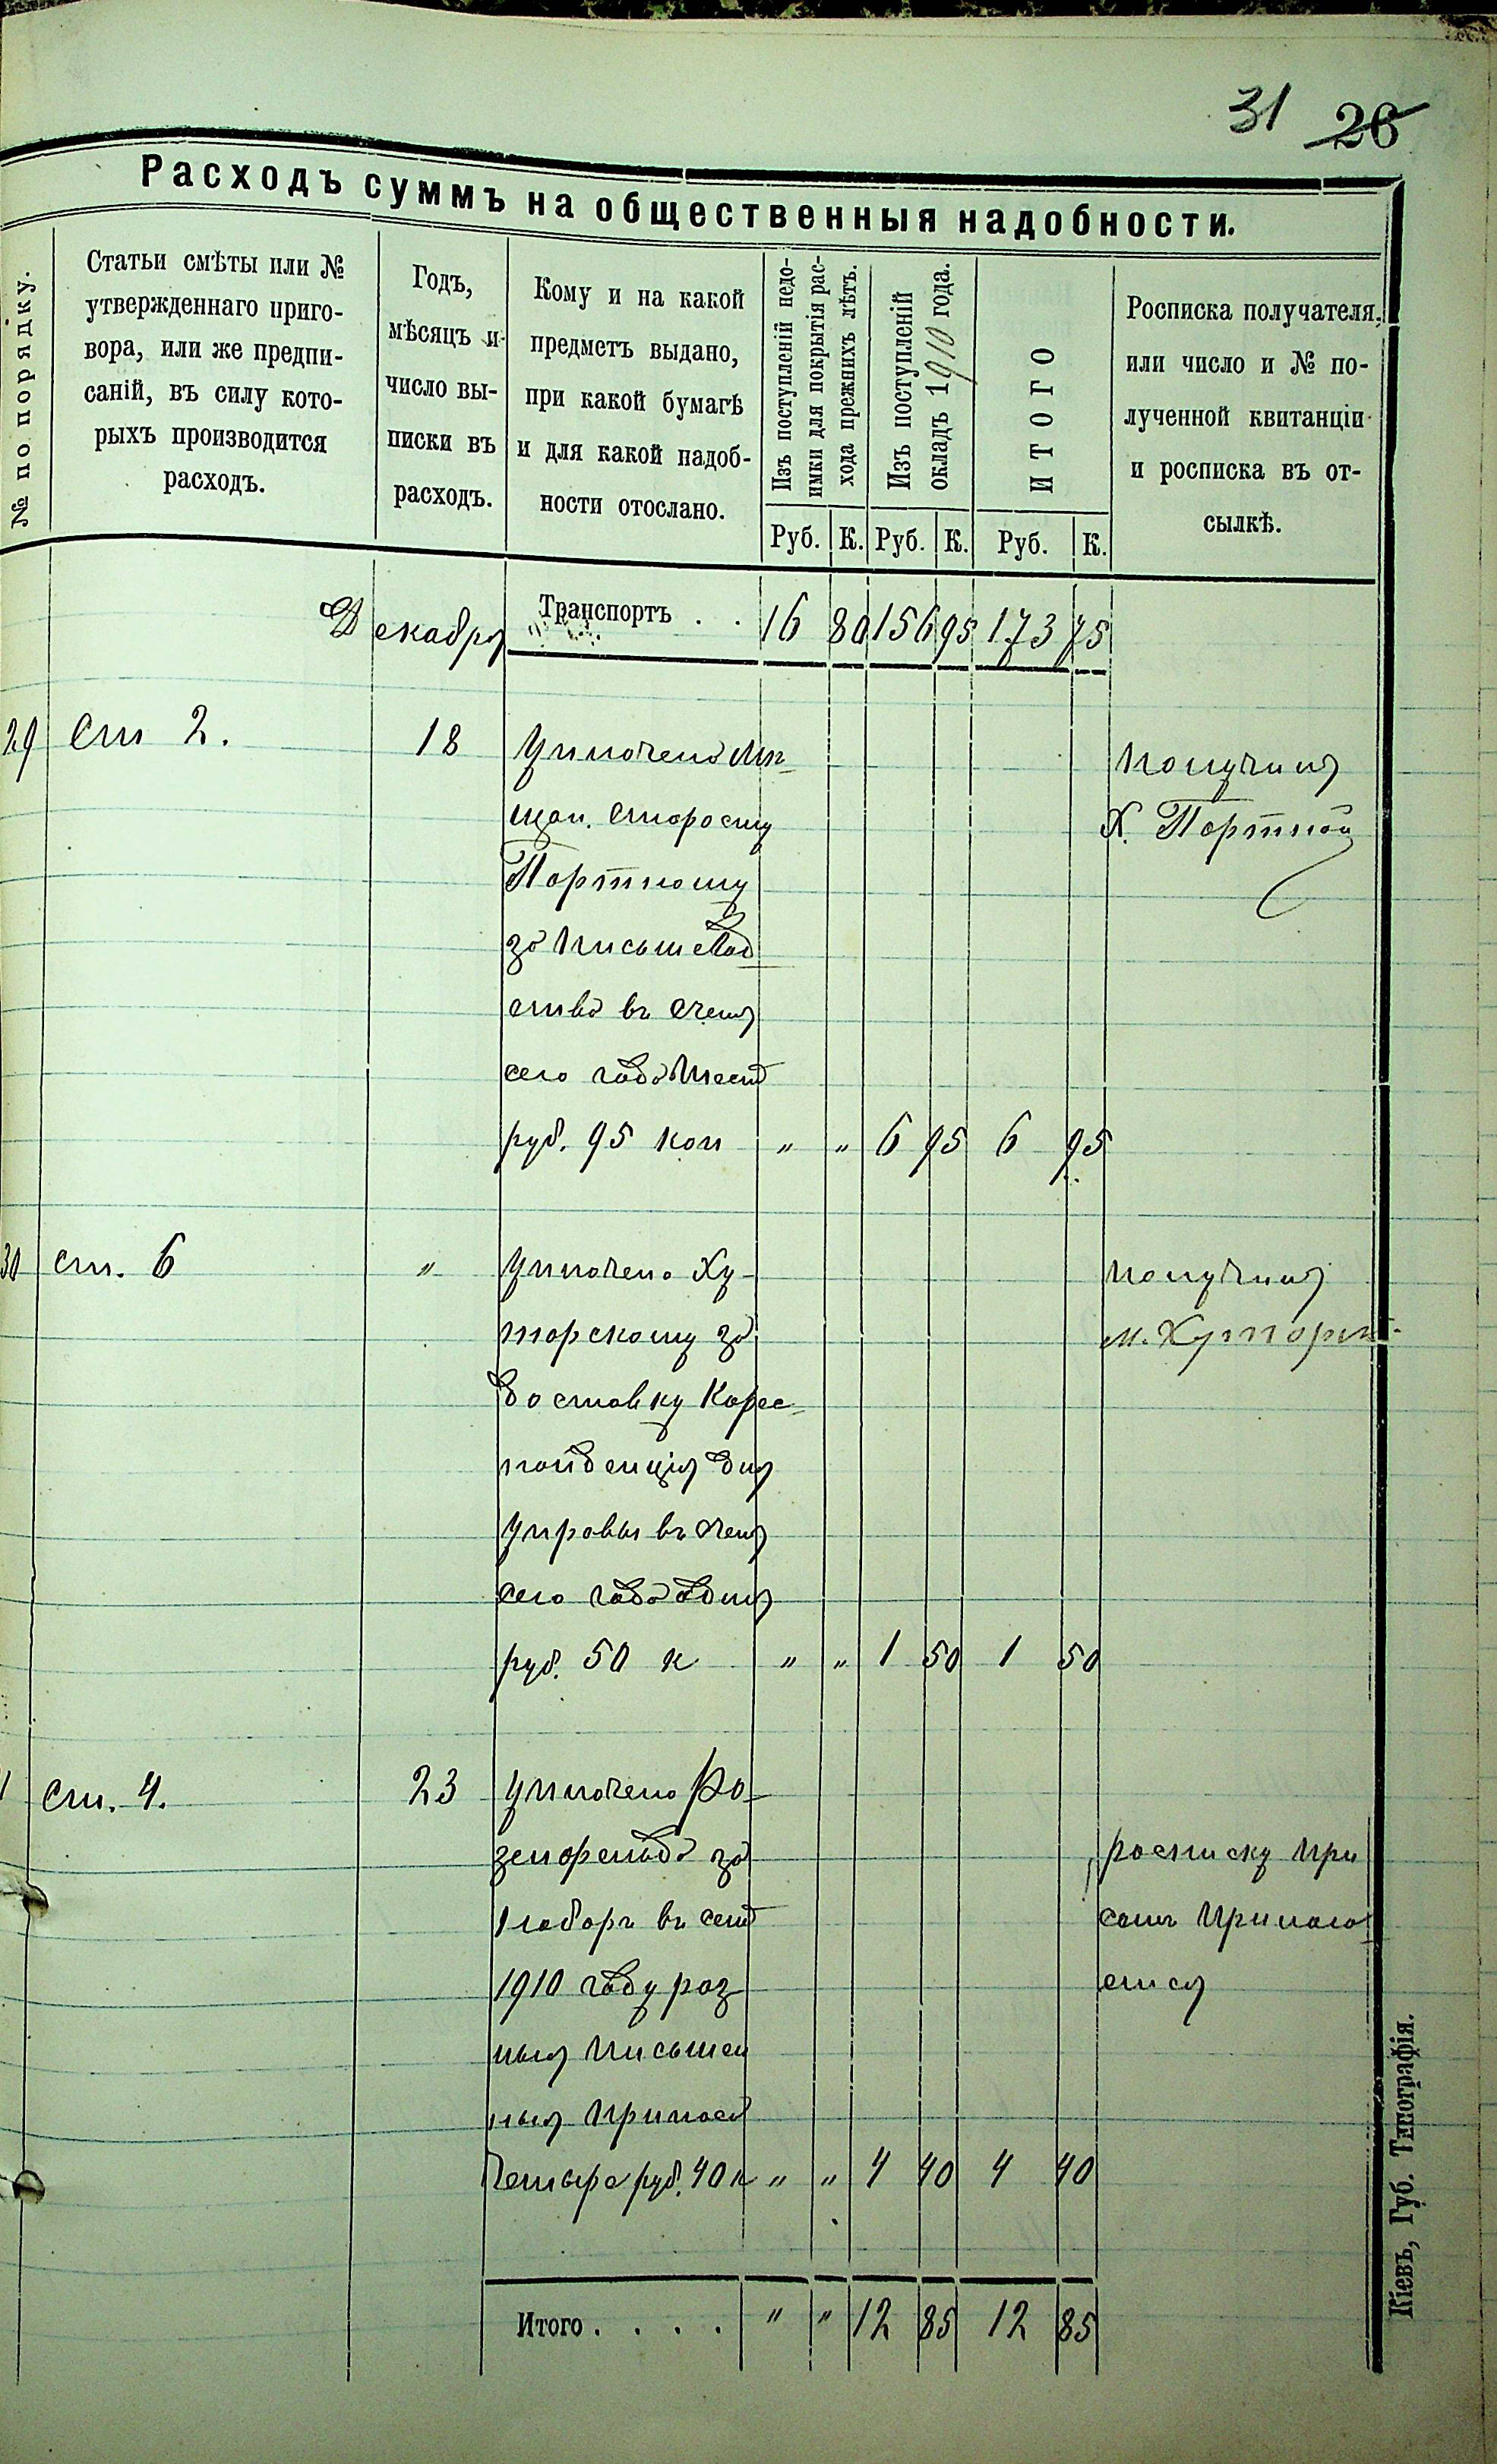 31 26
Расходъ суммъ на общественныя надобности.
№ по порядку.
Статьи смѣты или №
утвержденнаго приго-
вора, или же предпи-
саній, въ силу кото-
рыхъ производится
расходъ.
Годъ,
мѣсяцъ и
число вы-
писки въ
расходъ.
Кому и на какой
предметъ выдано,
при какой бумагѣ
и для какой надоб-
ности отослано.
Изъ поступленій недо-
имки для покрытія рас-
хода прежнихъ лѣтъ.
Изъ поступленій
окладъ 1910 года.
ИТОГО
Росписка получателя,
или число и № по-
лученной квитанціи
и росписка въ от-
сылкѣ.
Руб. К. Руб. К. Руб. К.
Декабря Транспортъ . . 16 80 156 95 173 75
29 ст 2. 18 Уплочено Мѣ-
щан. Старосту
Портному
за Письмевод
ство въ счетъ
сего года Шесть
руб. 95 коп „ „ 6 95 6 95
Получилъ
Х. Портной
30 ст. 6 „ Уплочено Ху-
торскому за
доставку Корес-
понденція для
Управы въ счетъ
сего года один
руб. 50 к „ „ 1 50 1 50
Получилъ
м. Хуторск
1 ст. 4. 23 Уплочено Ро-
зенфельда за
Набора въ семъ
1910 году раз
ныя Письмен
ныя Принад
Четыре руб. 40 к „ „ 4 40 4 40
росписку при
семъ прилага
ется
Итого . . . . „ „ 12 85 12 85
Кіевъ, Губ. Типографія.